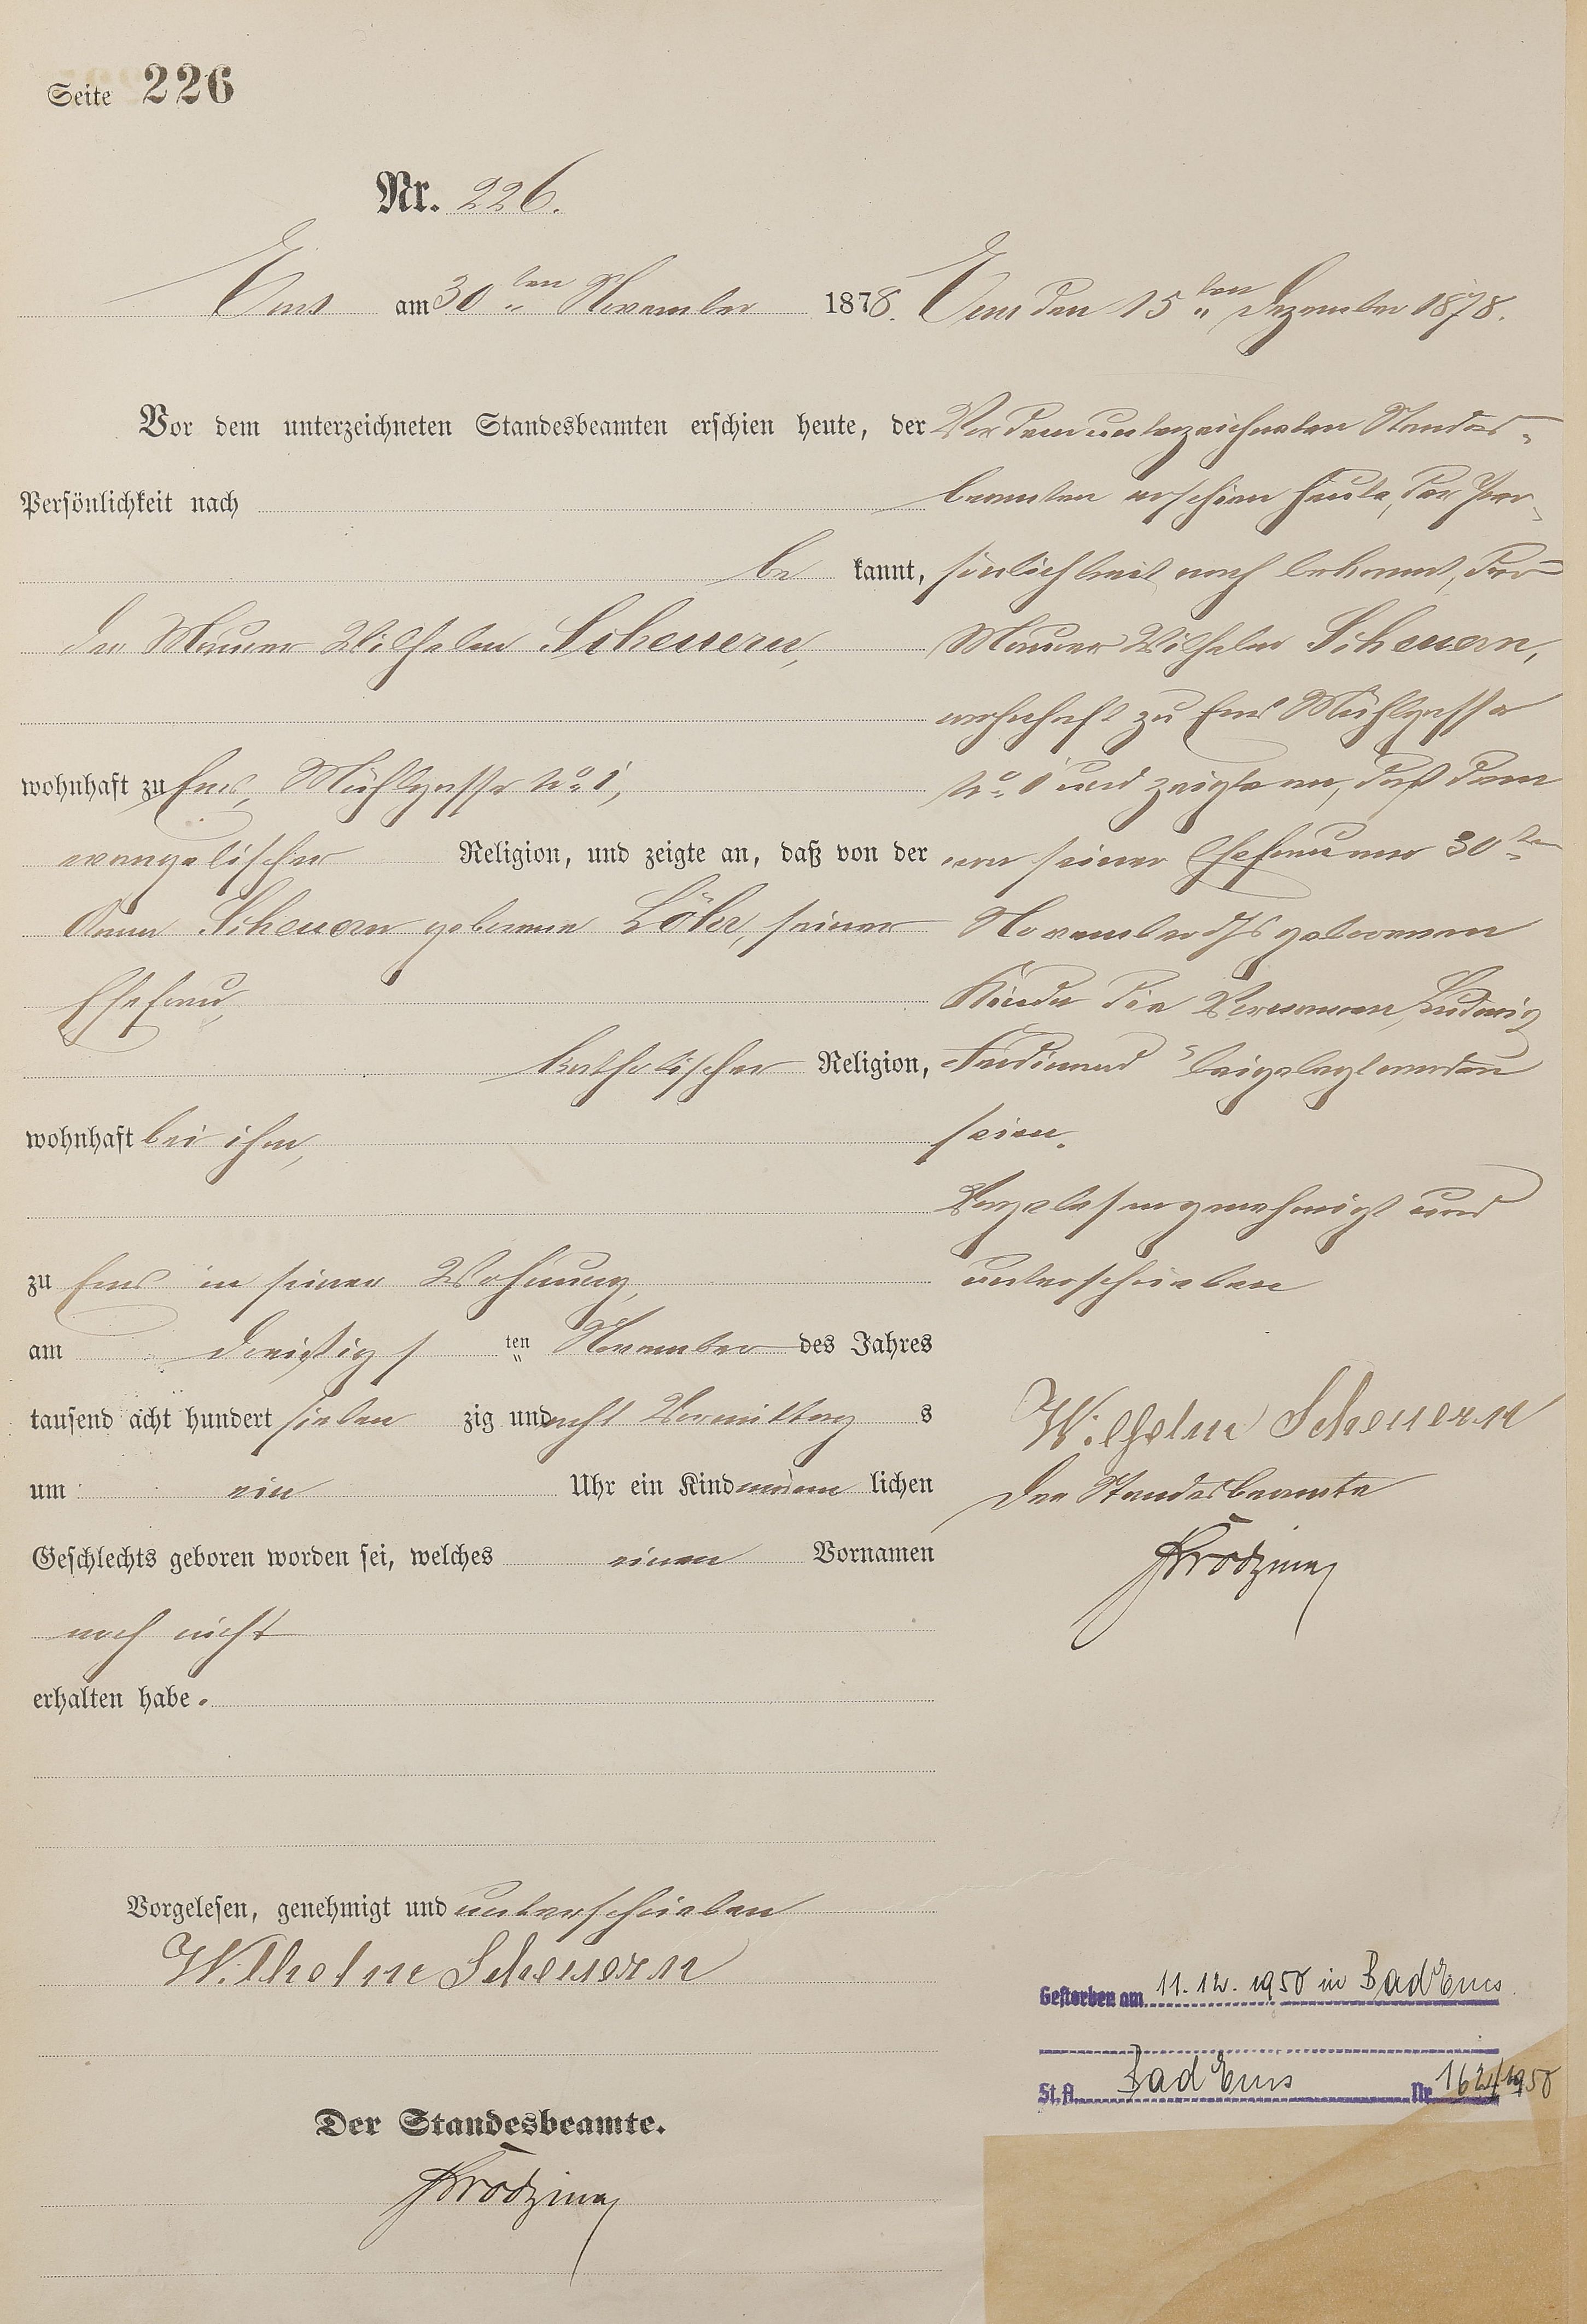 Seite 226
Nr. 226.
Ems am 30ten November 1878.
Vor dem unterzeichneten Standesbeamten erschien heute, der
Persönlichkeit nach
be kannt,
der Maurer Wilhelm Scheuern,
wohnhaft zu Ems, Mühlgasse No 1,
evangelischer Religion, und zeigte an, daß von der
Anna Scheuern geborene Löhr, seiner
Ehefrau,
katholischer Religion,
wohnhaft bei ihm,
zu Ems in seiner Wohnung,
am dreißigs ten November des Jahres
tausend acht hundert sieben zig und acht Vormittag s
um ein Uhr ein Kind männ lichen
Geschlechts geboren worden sei, welches einen Vornamen
noch nicht
erhalten habe.
Vorgelesen, genehmigt und unterschrieben
Wilhelm Scheuern
Der Standesbeamte.
Ems den 15ten Dezember 1878.
Vor dem unterzeichneten Standes-
beamten erschien heute, der Per-
sönlichkeit nach bekannt, der
Maurer Wilhelm Scheuern,
wohnhaft zu Ems Mühlgasse
No 1 und zeigte an, daß dem
von seiner Ehefrau am 30ten
November d Js geborenen
Kinde die Vornamen Ludwig
Ferdinand beigelegt worden
seien.
Vorgelesen genehmigt und
unterschrieben
Wilhelm Scheuern
Der Standesbeamte
Gestorben am 11.12.1950 in Bad Ems.
St.A. Bad Ems Nr. 162/1950